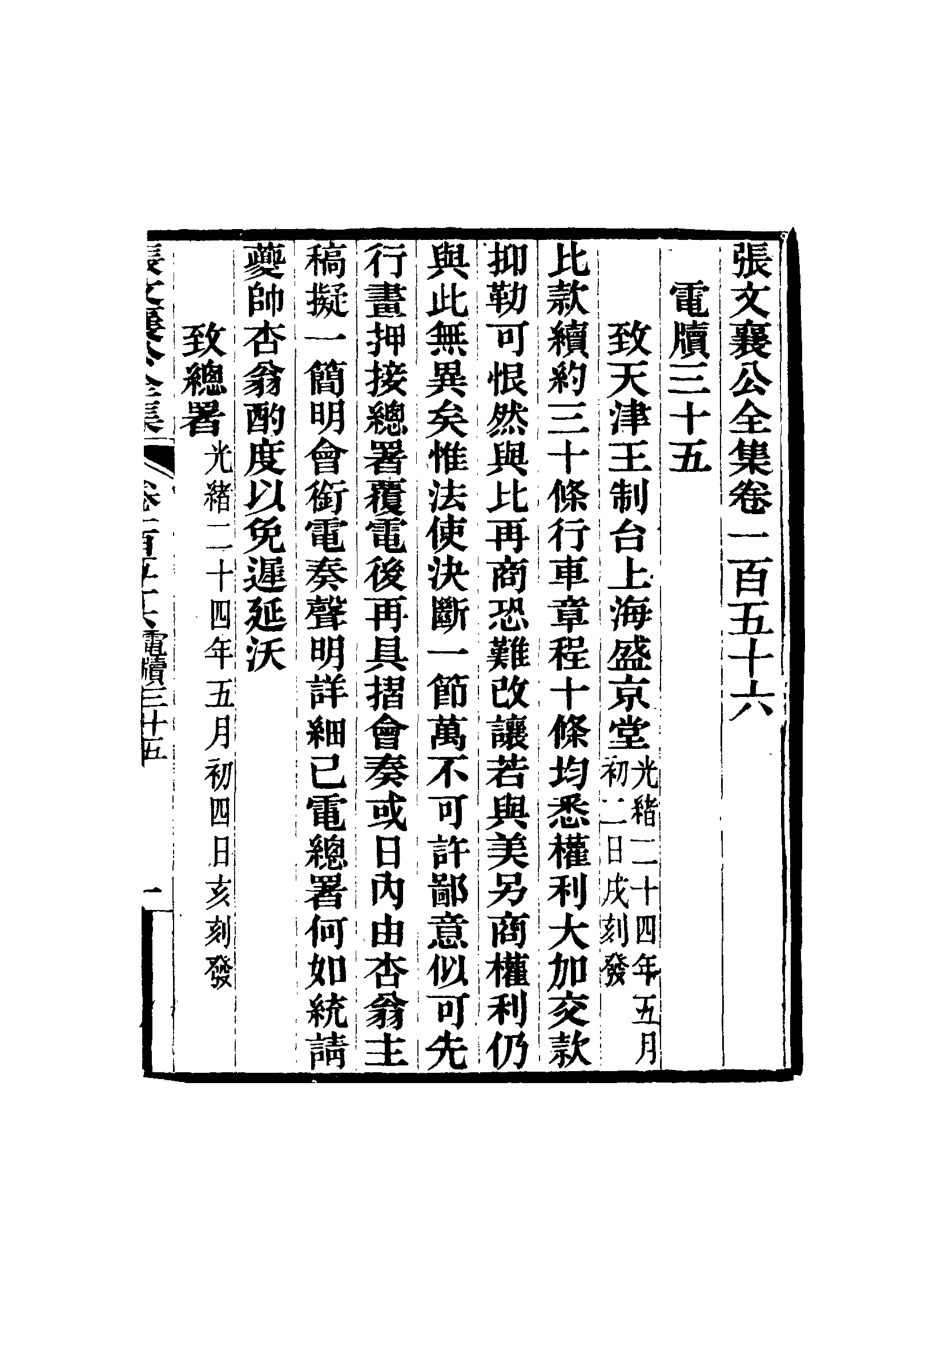 張文襄公全集卷一百五十六
電牘三十五
致天津王制台上海盛京堂光緒二十四年五月初二日戌刻發
比款續約三十條行車章程十條均悉權利大加交款
抑勒可恨然與比再商恐難改讓若與美另商權利仍
與此無異矣惟法使決斷一節萬不可許鄙意似可先
行畫押接總署覆電後再具摺會奏或日內由杏翁主
稿擬一簡明會銜電奏聲明詳細已電總署何如統請
夔帥杏翁酌度以免遲延沃
致總署光緒二十四年五月初四日亥刻發
張文襄公全集 卷一百五十六 電牘三十五 一